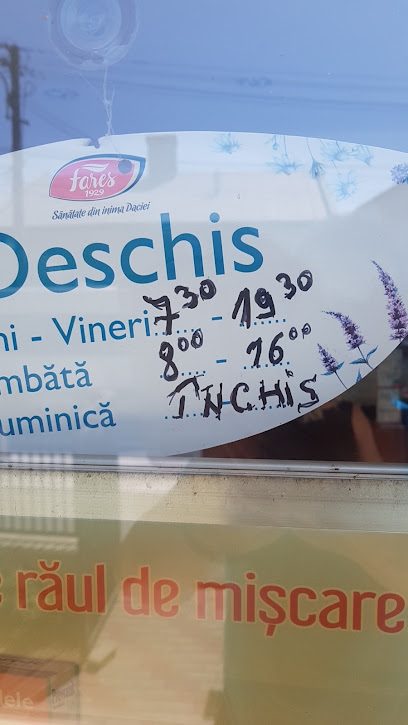 fares
1929
Sănătate din inima Daciei
Deschis
ni - Vineri 7³⁰ - 19³⁰
mbătă 8⁰⁰ - 16⁰⁰
uminică ÎNCHIS
răul de mișcare
lele